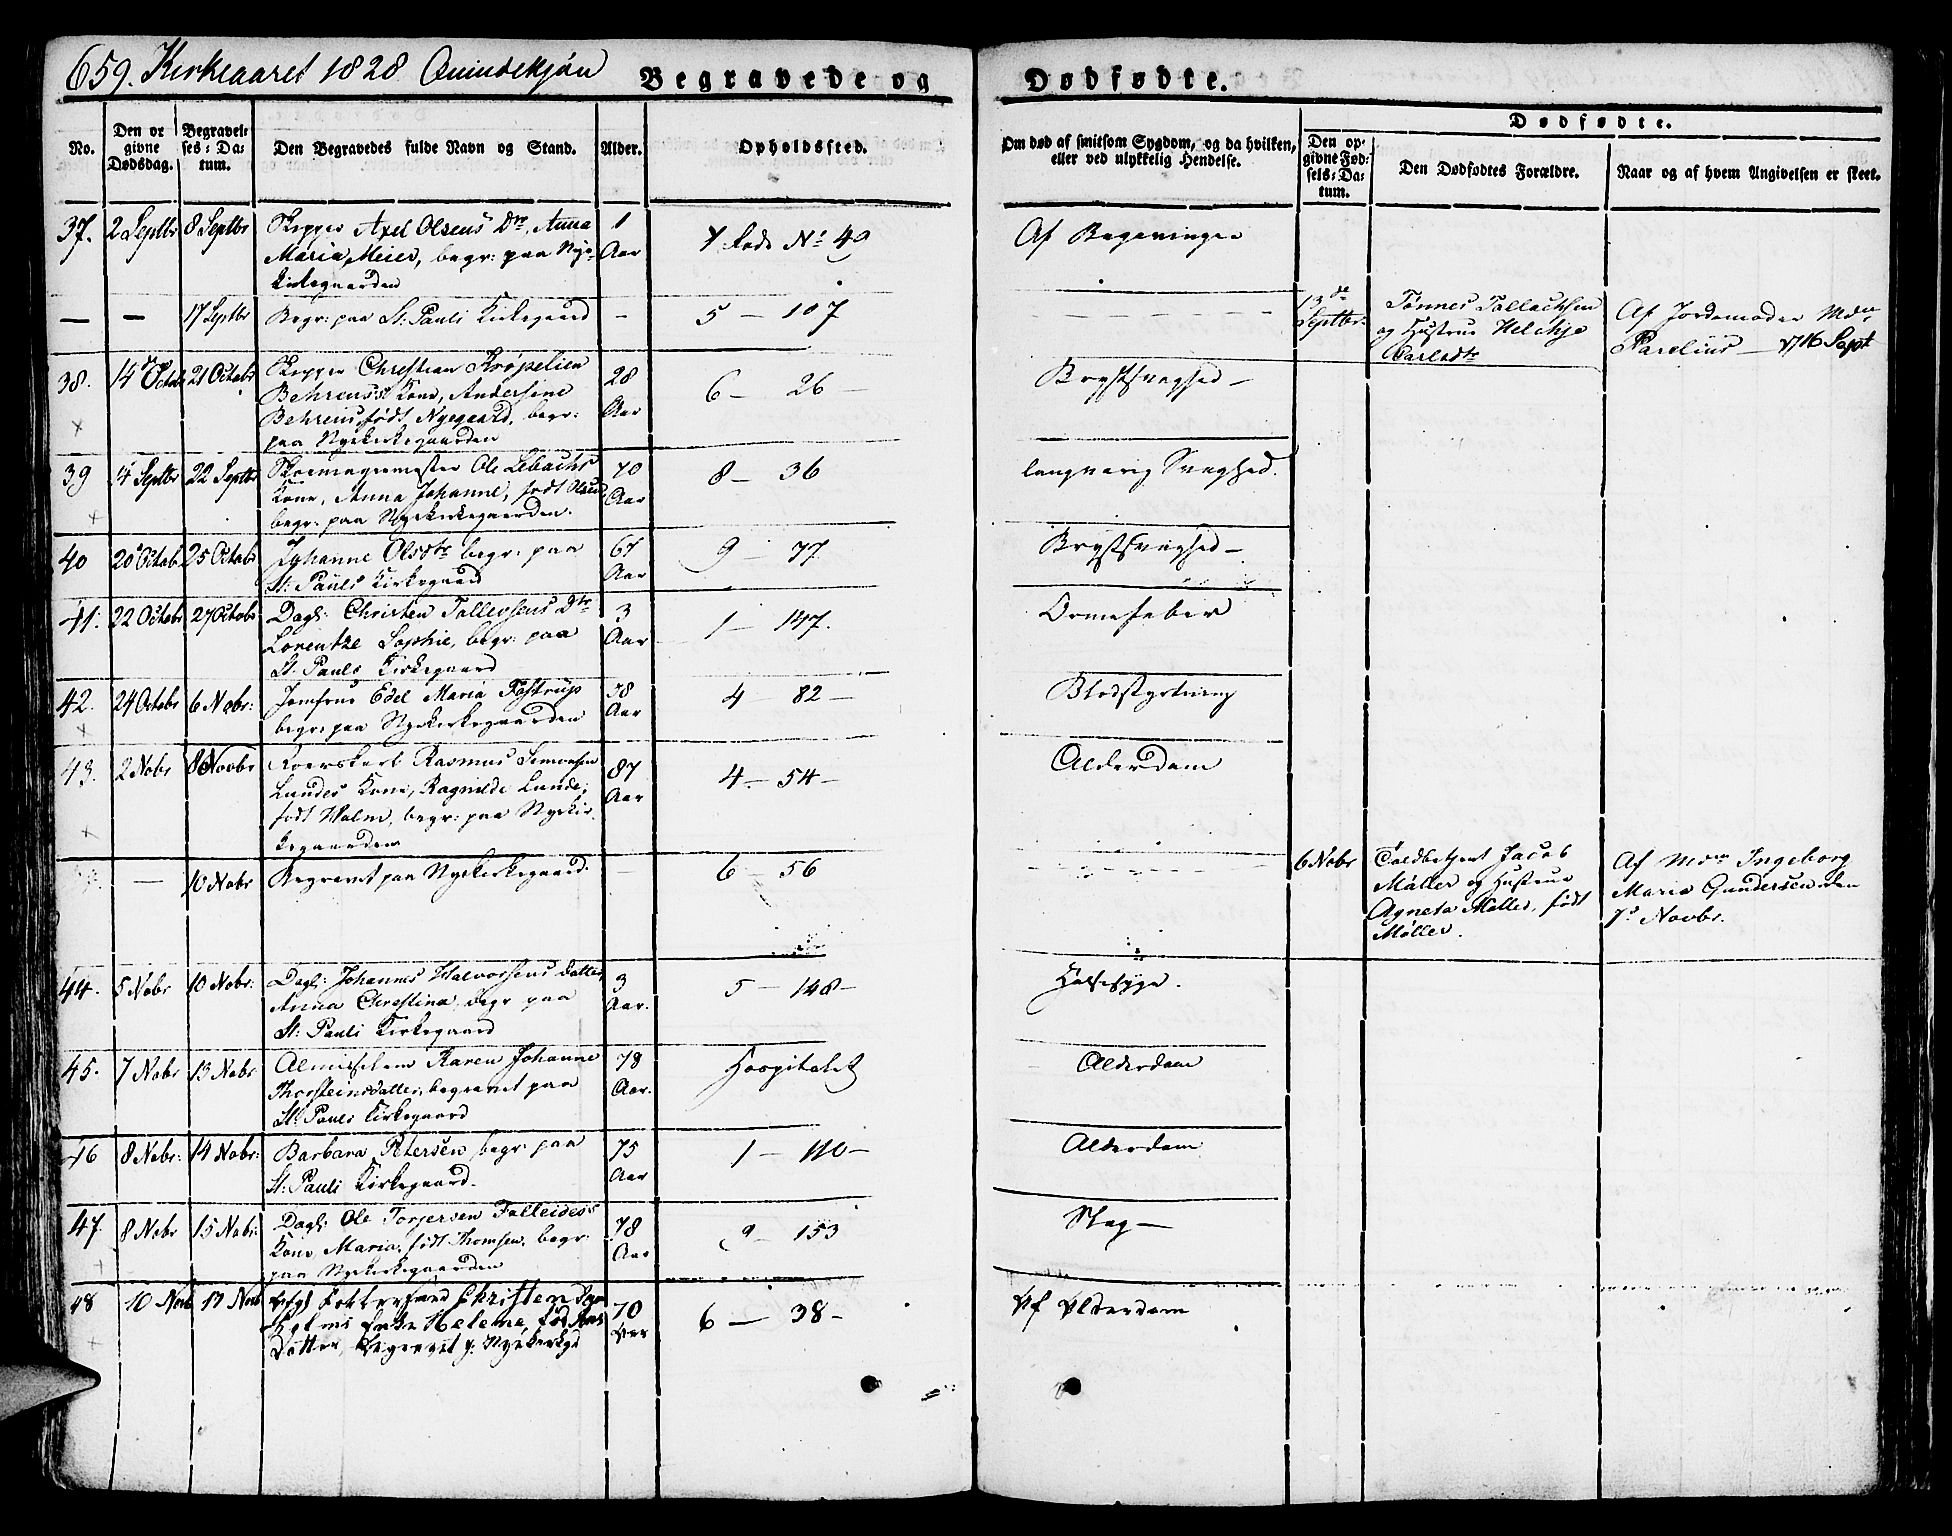 659. Kirkeaaret 1828 Qvindekjøn
Begravede og Dødfødte.
No.
Den opgivne Dødsdag.
Begravelses-Datum.
Den Begravedes fulde Navn og Stand.
Alder.
Opholdssted.
Om død af smitsom Sygdom, og da hvilken,
eller ved ulykkelig Hendelse.
Dødfødte.
Den opgivne Fødsels-Datum.
Den Dødfødtes Forældre.
Naar og af hvem Angivelsen er skeet.
37. 2 Septbr 8 Septbr Skipper Axel Olsens Dr. Anna 1 Aar 7 Rode No 49
Maria Meier, begr: paa Nye-
kirkegaarden
— — 17 Septbr Begr: paa St: Pauli Kirkegaard — 5 — 107
13de Septbr: Tønnes Tollachsen
og Hustrue
Af Jordemoder Mdm
16 Sept
38. 14 Octob 21 Octobr Skipper Christian Krøpelien 28 Aar 6 — 26 — Brystsvaghed —
Behrens's Kone, Andersine
Behrens, født Nyegaard, begr:
paa Nyekirkegaarden
39 14 Septbr 22 Septbr Skoemagermester Ole Lebachs 70 Aar 8 — 36 langvarig Svaghed.
Kone, Anna Johanne, født Olsen
begr: paa Nyekirkegaarden.
40 20 Octob 25 Octobr Johanne Olsdtr begr: paa 67 Aar 9 — 77 Brystsvaghed —
St: Pauls Kirkegaard
41. 22 Octobr 27 Octobr Dagl: Christen Tallevsens Dtr 3 Aar 1 — 147. Ormefeber
Lorentze Sophie, begr: paa
St. Pauls Kirkegaard
42. 24 Octobr 6 Nobr: Jomfrue Edel Maria 38 Aar 4 — 82 — Blodstyrtning
begr: paa Nyekirkegaarden
43. 2 Nobr 8 Novbr Rasmus Simonsen 87 Aar 4 — 54 — Alderdom
Lundes Kone, Ragnilde Lunde,
født Holm, begr: paa Nyekir-
kegaarden
— 10 Nobr Begravet paa Nyekirkegaard. 6 — 56
6 Nobr Toldbetjent Jacob
Møller og Hustrue
Agneta Møller, født
Møller.
Af Mdm Ingeborg
Maria Gundersen den
7de Novbr.
44. 5 Nobr 10 Nobr: Dagl: Johannes Halvorsens datter 3 Aar. 5 — 148 — Halssyge.
Anna Christina, begr paa
St: Pauli Kirkegaard
45. 7 Nobr 13 Nobr Almisselem Karen Johanne 78 Aar. Hospitalet Alderdom
Thorsteinsdatter, begravet paa
St. Pauls Kirkegaard
46 8 Nobr: 14 Nobr: Barbara Petersen, begr: paa 75 Aar 1 — 110 — Alderdom
St: Pauli Kirkegaard.
47. 8 Nobr 15 Nobr: Dagl: Ole Torjersen 78 Aar 9 — 153 Slag —
Kone Maria, født Thomsen, begr:
paa Nyekirkegaarden
48 10 Novb 17 Novb Christen 70 Aar 6 — 38 — Af Alderdom
Enke Helene, fød
Datter, begravet p: Nyekirkgd